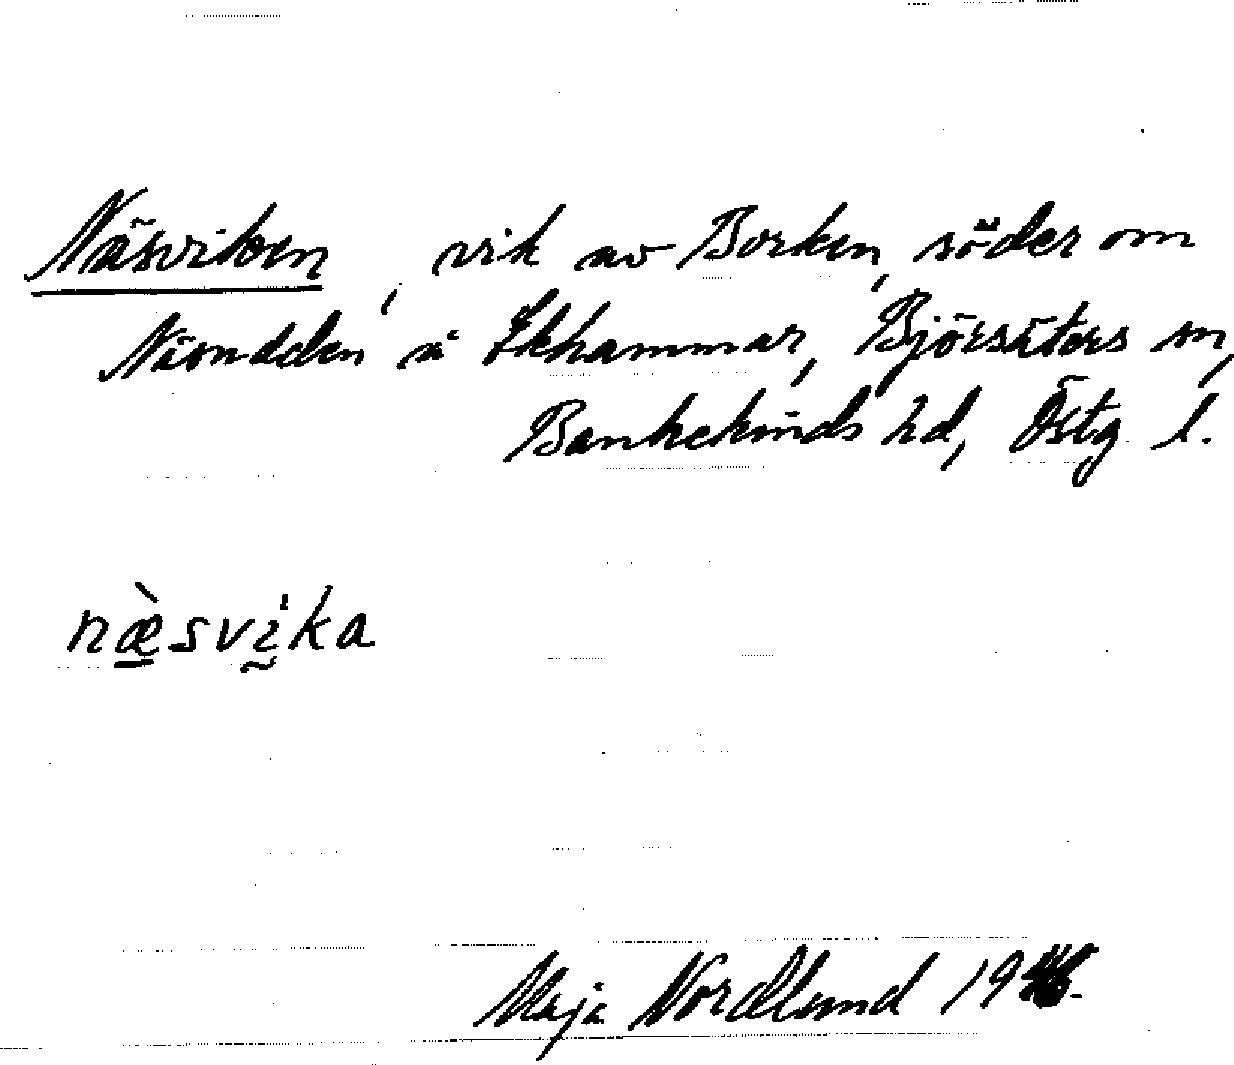 Näsviken, vik av Borken, söder om
Näsudden å Ekhammar, Björsäters sn,
Bankekinds hd, Östg. l.
næ̀svika
Maja Nordlund 19